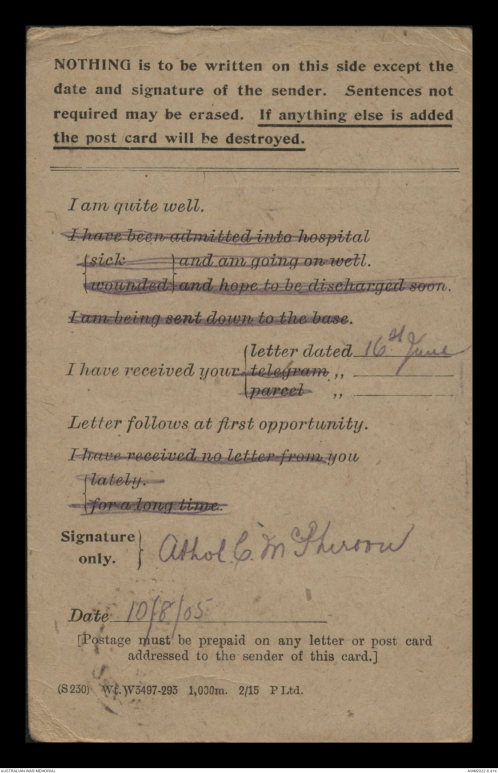 NOTHING is to be written on this side except the
date and signature of the sender. Sentences not
required may be erased. If anything else is added
the post card will be destroyed.
I am quite well.
I have been admitted into hospital
sick and am going on well.
wounded and hope to be discharged soon.
I am being sent down to the base.
letter dated 16st June
I have received your telegram ,,
parcel ,,
Letter follows at first opportunity.
I have received no letter from you
lately.
for a long time.
Signature
only.
Athol C. McPherson
Date 10/8/05
[Postage must be prepaid on any letter or post card
addressed to the sender of this card.]
(S 230) Wt. W3497-293 1,000m. 2/15 P Ltd.
AUSTRALIAN WAR MEMORIAL